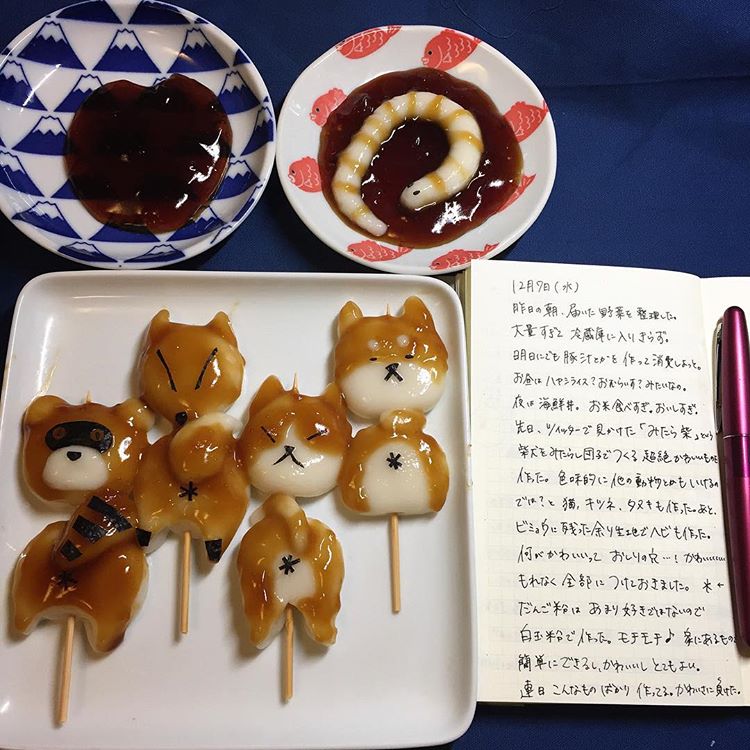 12月9日(水)
昨日の朝、届いた野菜を整理した。
大量すぎて冷蔵庫に入りきらず。
明日にでも豚汁とかを作って消費しよっと。
お昼はハヤシライス?おむらいす?みたいなの。
夜は海鮮丼。お米食べすぎ。おいしすぎ。
先日、ツイッターで見かけた「みたら柴」という
柴犬をみたらし団子でつくる超絶かわいいものを
作った。色味的に他の動物とかもいけるの
では?と猫、キツネ、タヌキも作った。あと、
ビミョウに残った余り生地でヘビも作った。
何がかわいいって おしりの穴…!かわいい
もれなく全部につけておきました。 * ←
だんご粉はあまり好きではないので
白玉粉で作った。モチモチ♪ 家にあるもので
簡単にできるし、かわいいし とてもよい。
連日 こんなものばかり 作ってる。かわいさに負けた。